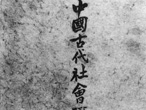 中國古代社會